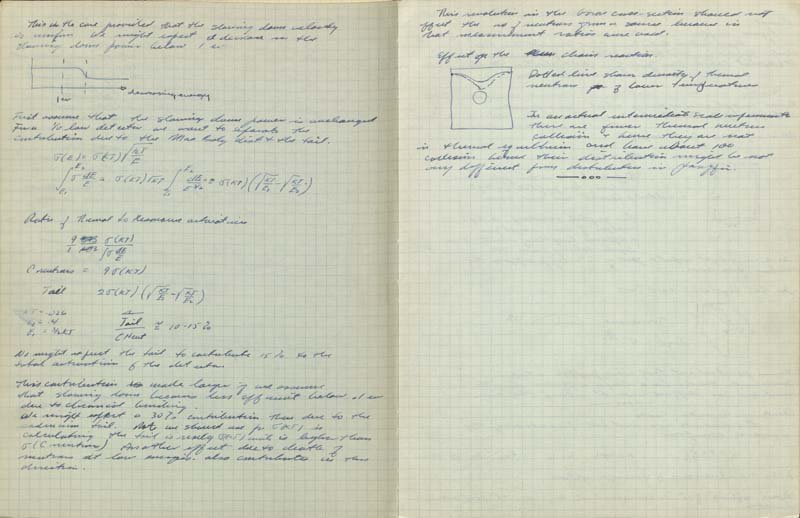 This is the case provided that the slowing down velocity
is uniform. We might expect a decrease in the
slowing down power below 1 ev
1 ev
decreasing energy
First assume that the slowing down power is unchanged
For a 1/v law detector we want to separate the
contribution due to the Max Body dist & the tail.
σ(E) = σ(KT) √KT/E
∫ σ dE/E = σ(KT) √KT ∫ dE/E^3/2 = 2 σ(KT) (√KT/E₁ - √KT/E₂)
Ratio of Thermal to Resonance activation
9/1 σ(KT) / ∫σ dE/E
C neutrons = 9 σ(KT)
Tail 2σ(KT) (√KT/E₁ - √KT/E₂)
KT = .026
E₂ = .4
Tail / C Neut ≅ 10-15%
We might expect the tail to contribute 15% to the
total activation of the detector.
This contribution is made larger if we assume
that slowing down becomes less efficient below .1 ev
due to chemical binding.
We might expect a 30% contribution then due to the
cadmium tail.
calculating the tail is really which is higher than
σ(C neutron) Another effect due to death of
neutrons at low energies also contributes in this
direction.
This revolution in the Boron cross-section should not
effect the no of neutrons from a source because in
that measurement ratios are used.
Effect on the chain reaction.
Dotted line shows density of thermal
neutrons of lower temperature
In an actual intermediate scale experiments
there are fewer thermal neutron
collisions & hence they are not
in thermal equilibrium and have about 100
collisions hence their distribution might be not
very different from distribution in